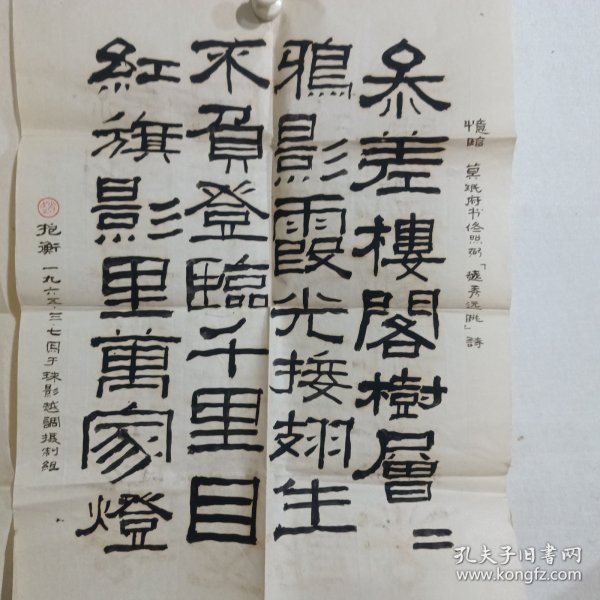 憶臨 莫珉府书修照於「遠秀远眺」詩
参差樓閣樹層二
鴉影霞光接翅生
不負登臨千里目
紅旗影里萬家燈
抱衡 一九六 三 七 于珠影越調摄制組
孔夫子旧书网
www.kongfz.com